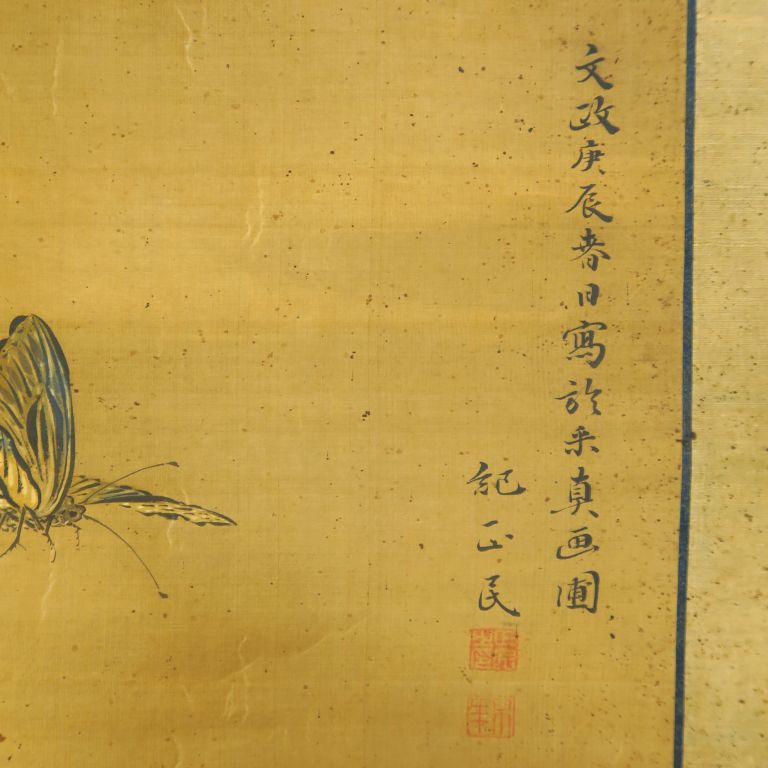 文政庚辰春日寫於采真画圃
記正民